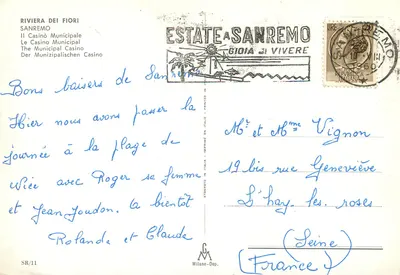 RIVIERA DEI FIORI
SANREMO
Il Casinò Municipale
Le Casino Municipal
The Municipal Casino
Der Munizipalischen Casino
ESTATE A SANREMO
GIOIA DI VIVERE
SANREMO
Bons baisers de Sanremo
Hier nous avons passer la
journée à la plage de
avec Roger se femme
et Jean-Joudon. La bientôt
Rolande et Claude
Mr et Mme Vignon
19 bis rue Geneviève
L'hay. les. roses
(Seine)
(France)
SB/11
Milano-Dep.